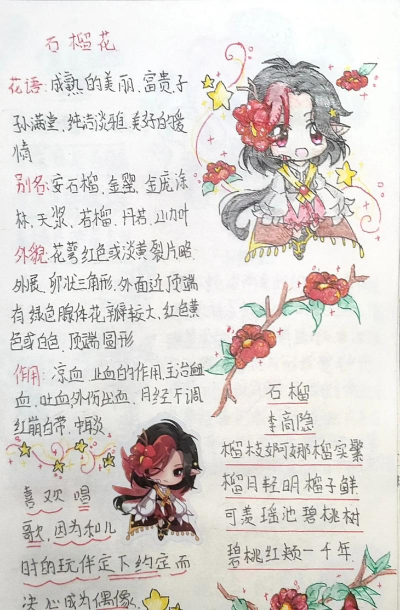 石榴花
花语:成熟的美丽、富贵子
孙满堂、纯洁淡雅、美好的爱
情
别名:安石榴、金罂、金庞涂
林、天浆、若榴、丹若、山力叶
外貌:花萼红色或淡黄裂片略
外展、卵状三角形、外面近顶端
有绿色腺体花瓣较大、红色黄
色或白色、顶端圆形
作用:凉血、止血的作用.主治衄
血、吐血外伤出血、月经不调
红崩白带、中耳炎
喜欢唱
歌,因为和儿
时的玩伴定下约定而
决心成为偶像
石榴
李商隐
榴枝婀娜榴实繁
榴月轻明榴子鲜
可羡瑶池碧桃树
碧桃红颊一千年